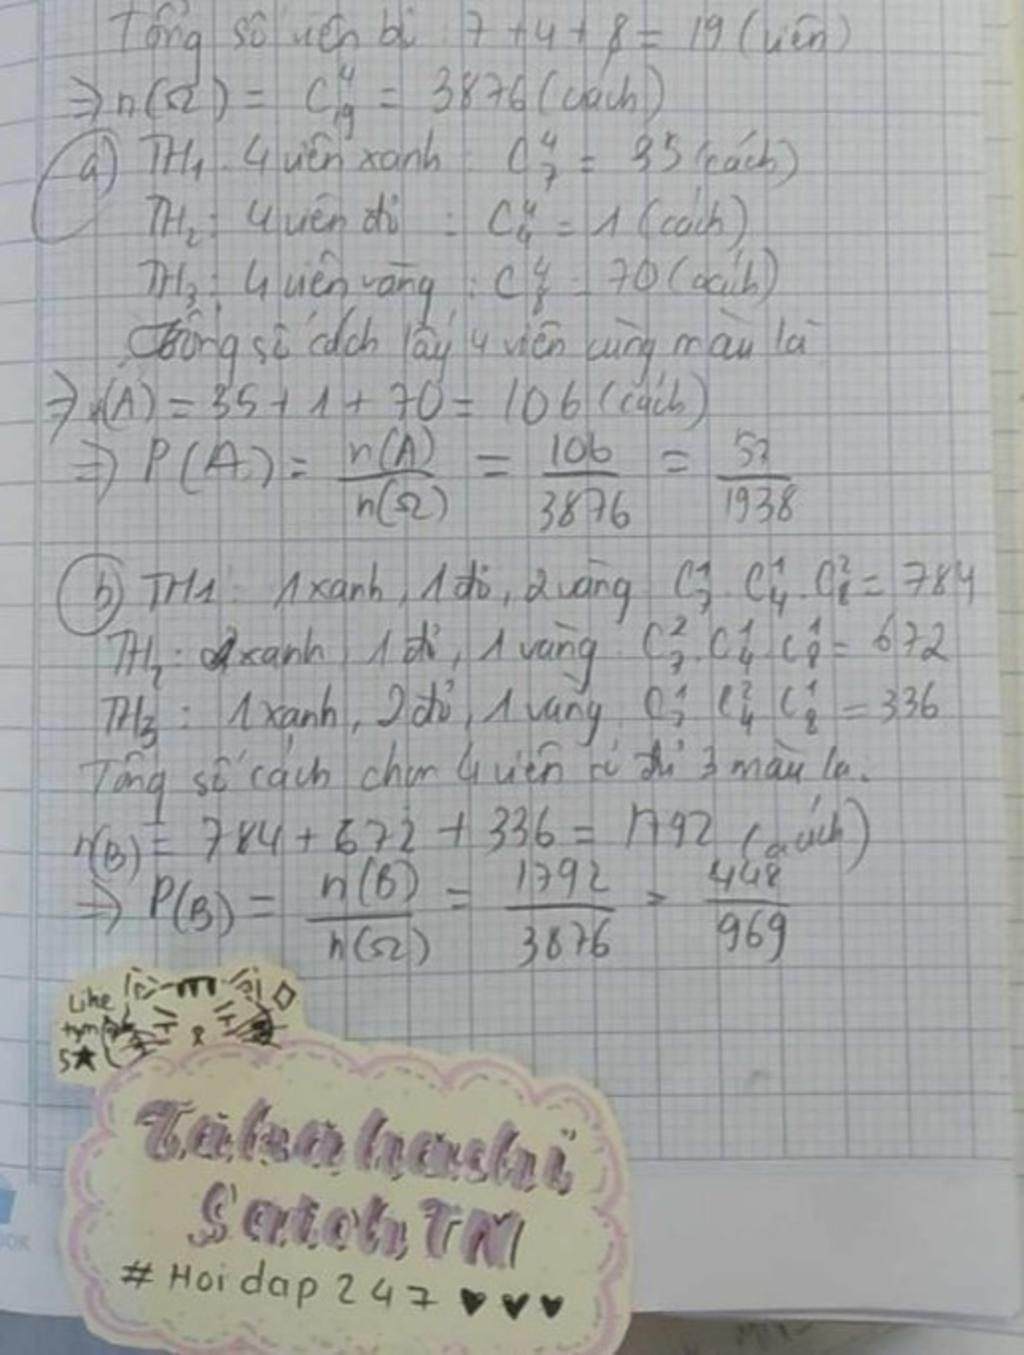 Tổng số viên bi 7 + 4 + 8 = 19 (viên)
⇒ n(Ω) = C₁₉⁴ = 3876 (cách)
a) TH₁: 4 viên xanh C₇⁴ = 35 (cách)
TH₂: 4 viên đỏ : C₄⁴ = 1 (cách)
TH₃: 4 viên vàng : C₈⁴ = 70 (cách)
Tổng số cách lấy 4 viên cùng màu là
⇒ n(A) = 35 + 1 + 70 = 106 (cách)
⇒ P(A) = n(A)/n(Ω) = 106/3876 = 53/1938
b) TH1: 1 xanh, 1 đỏ, 2 vàng C₇¹ C₄¹ C₈² = 784
TH₂: 2 xanh, 1 đỏ, 1 vàng C₇² C₄¹ C₈¹ = 672
TH₃: 1 xanh, 2 đỏ, 1 vàng C₇¹ C₄² C₈¹ = 336
Tổng số cách chọn 4 viên đủ 3 màu là.
n(B) = 784 + 672 + 336 = 1792 (cách)
⇒ P(B) = n(B)/n(Ω) = 1792/3876 = 448/969
Like
tym
5★
Takahashi
Saitoh TM
# Hoidap 247 ♥♥♥